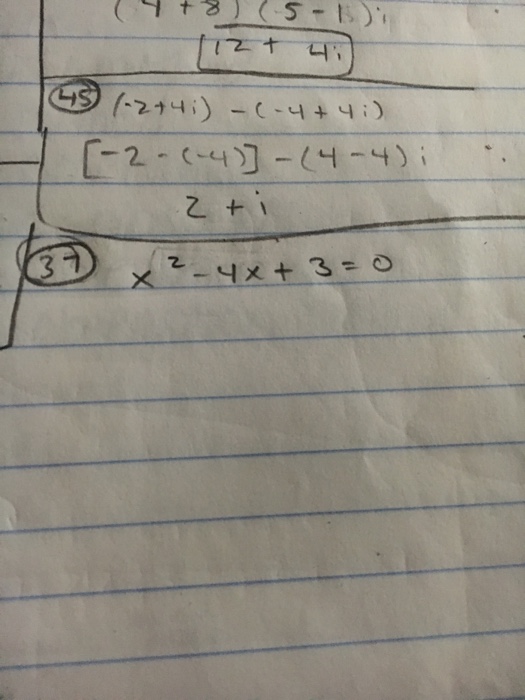 (4 + 8) (5 - 1)i
12 + 4i
45 (-2+4i) - (-4 + 4i)
[-2 - (-4)] - (4 - 4) i
2 + i
37 x² - 4x + 3 = 0